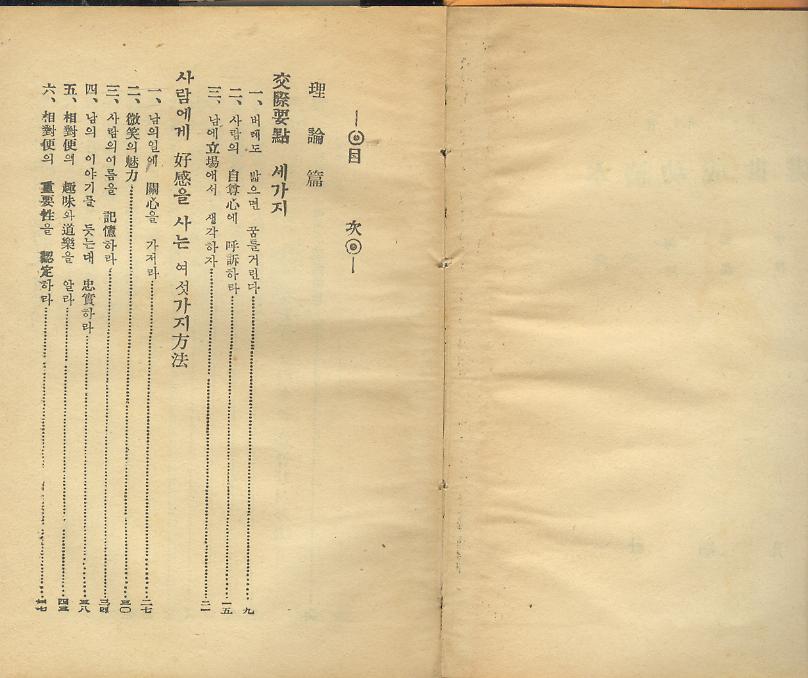 目次
理論篇
交際要點 세가지
一、버레도 밟으면 꿈틀거린다 九
二、사람의 自尊心에 呼訴하라 一五
三、남에立場애서 생각하자 二一
사람에게 好感을 사는 여섯가지方法
一、남의일에 關心을 가저라 二七
二、微笑의魅力 三〇
三、사람의이름을 記憶하라 三四
四、남의 이야기를 듯는대 忠實하라 三八
五、相對便의 趣味와道樂을 알라 四三
六、相對便의 重要性을 認定하라